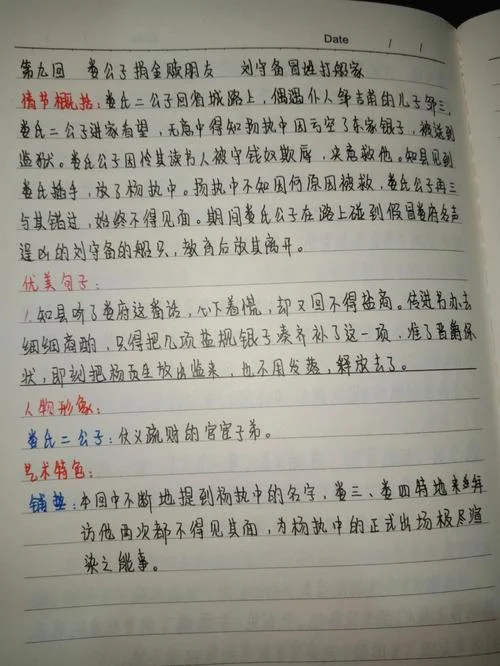 Date / /
第九回 娄公子捐金赎朋友 刘守备冒姓打船家
情节概括：娄氏二公子回省城路上，偶遇仆人邹吉甫的儿子邹三，
娄氏二公子进家看望，无意中得知杨执中因亏空了东家银子，被送到
监狱。娄氏公子因怜其读书人被守钱奴欺辱，决意救他。知县见到
娄氏插手，放了杨执中。杨执中不知因何原因被救，娄氏公子再三
与其错过，始终不得见面。期间娄氏公子在路上碰到假冒娄府名声
逞凶的刘守备的船只，教育后放其离开。
优美句子：
1.知县听了娄府这番话，心下着慌，却又回不得盐商。传进书办去
细细商酌，只得把几项盐规银子凑齐补了这一项，准了晋爵保
状，即刻把杨贡生放出监来，也不用发落，释放去了。
人物形象：
娄氏二公子：仗义疏财的官宦子弟。
艺术特色：
铺垫：本回中不断地提到杨执中的名字，娄三、娄四特地来拜
访他两次都不得见其面，为杨执中的正式出场极尽渲
染之能事。